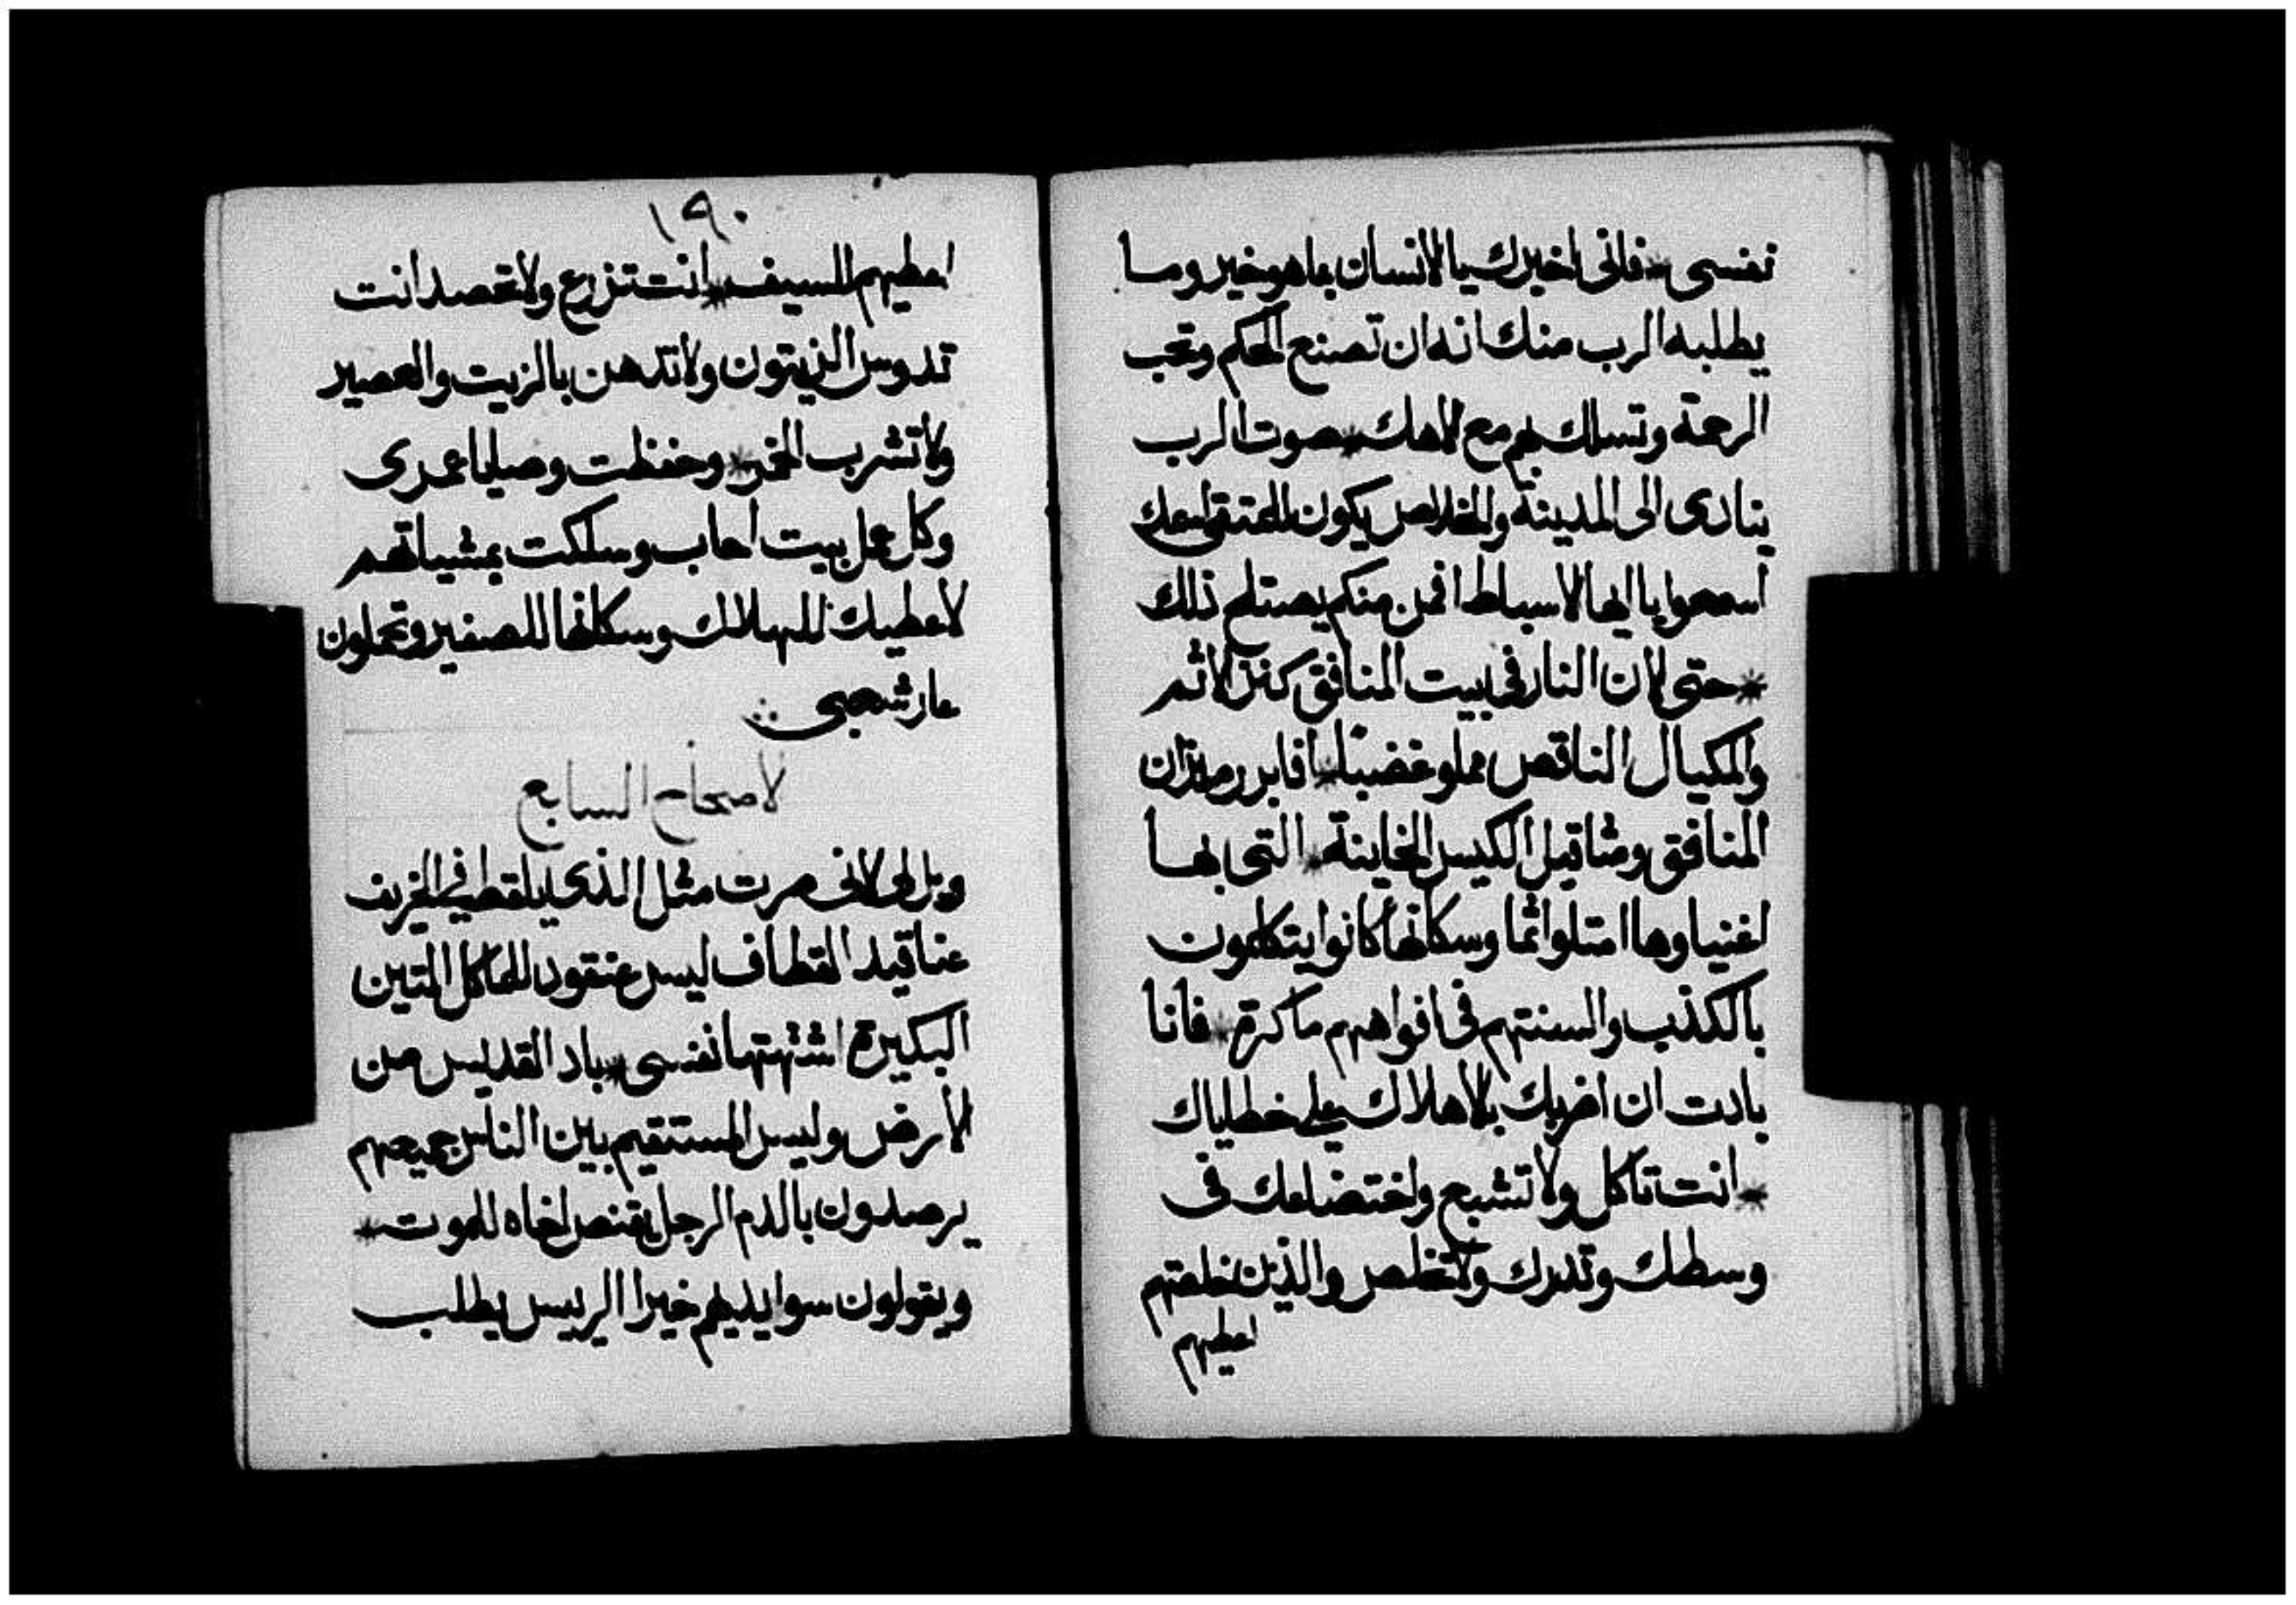 نفسى * فانى اخبرك يا الانسان بماهو خير وما
يطلبه الرب منك انه ان تصنع الحكم وتحب
الرحمة وتسلك بهم مع الاهك * صوت الرب
ينادى الى المدينة والخلاص يكون للمتقى اسمك
اسمعوا يا ايها الاسباط افمن منكم يصتلح ذلك
* حتى لان النار فى بيت المنافق كنز الاثم
والمكيال الناقص مملو غضبا * افابرر ميزان
المنافق ومثاقيل الكيس الخاينة * التى بها
اغنياوها امتلوا اثما وسكانها كانوا يتكلمون
بالكذب والسنتهم فى افواههم ماكرة * فانا
بادت ان اضربك بالاهلاك على خطاياك
* انت تاكل ولا تشبع واختضاعك فى
وسطك وتدرك ولا تخلص والذين خلصتهم
اعطيهم
١٩٠
اعطيهم للسيف * انت تزرع ولا تحصد انت
تدوس الزيتون ولا تدهن بالزيت والعصير
ولا تشرب الخمر * وحفظت وصايا عمرى
وكل عمل بيت احاب وسلكت بمشياتهم
لاعطيك للهلاك وسكانها للصفير وتحملون
عار شعبى
الاصحاح السابع
ويل لى لانى صرت مثل الذى يلقط فى الخريف
عناقيد القطاف ليس عنقود للماكل التين
البكيرة اشتهتها نفسى * باد القديس من
الارض وليس المستقيم بين الناس جميعهم
يرصدون بالدم الرجل يقنص اخاه للموت *
ويقولون سوا يديهم خيرا الرييس يطلب